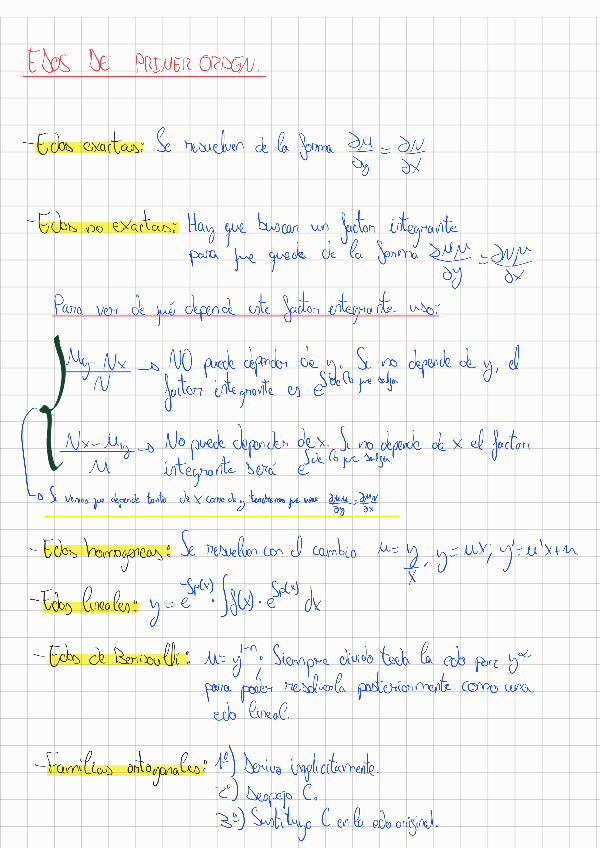 EDOS DE PRIMER ORDEN.
- Edos exactas: Se resuelven de la forma ∂M/∂y = ∂N/∂x
- Edos no exactas: Hay que buscar un factor integrante
para que quede de la forma ∂Mμ/∂y = ∂Nμ/∂x
Para ver de qué depende este factor integrante uso:
(My - Nx)/N → NO puede depender de y. Si no depende de y, el
factor integrante es e^∫de lo que salga
(Nx - My)/M → No puede depender de x. Si no depende de x el factor
integrante será e^∫de lo que salga
→ Si vemos que depende tanto de x como de y tendremos que usar ∂Mμ/∂y = ∂Nμ/∂x
- Edos homogeneas: Se resuelven con el cambio u = y/x, y = ux; y' = u'x+u
- Edos lineales: y = e^-∫p(x) · ∫f(x) · e^∫p(x) dx
- Edos de Bernoulli: u = y^1-n; Siempre divido toda la edo por y^α
para poder resolverla posteriormente como una
edo lineal.
- Familias ortogonales: 1º) Derivo implicitamente.
2º) Despejo C.
3º) Sustituyo C en la edo original.